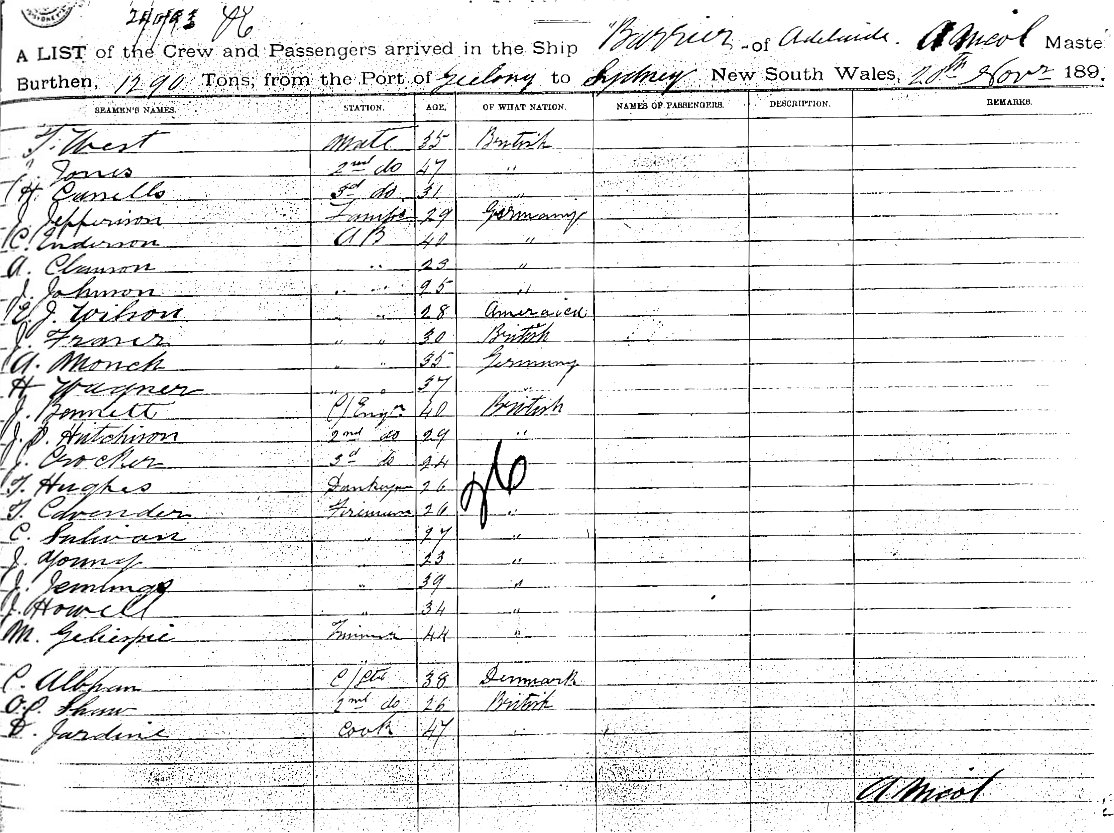 A LIST of the Crew and Passengers arrived in the Ship "Barrier of Adelaide. A Nicol Maste
Burthen, 1290 Tons, from the Port of Geelong to Sydney New South Wales, 20th Novr 189
SEAMEN'S NAMES. STATION. AGE, OF WHAT NATION. NAMES OF PASSENGERS. DESCRIPTION. REMARKS.
T. West Mate 35 British
Jones 2nd do 47 "
H. 3rd do. 31 "
J. Lamps 29 Germany
C. Enderson AB 40 "
A. Clauson " " 23 "
J. Johnson " " 25 "
E. J. Wilson " " 28 America
J. Fraser " " 30 British
A. Monck " " 35 Germany
H Wagner " " 37
J. Bennett C/Engr 40 British
J. S. Hutchison 2nd do 29 "
J. Crocker 3rd do 24
T. Hughes 26
T. Cavender Fireman 26 "
C. Sulivan " 27 "
J. Young 23 "
J. Jennings " 39 "
J. Howell " 34 "
M. Gellespie Trimmer 44 "
C. 38 Denmark
O. C. Shaw 2nd do 26 British
D. Jardine Cook 47
26
A Nicol